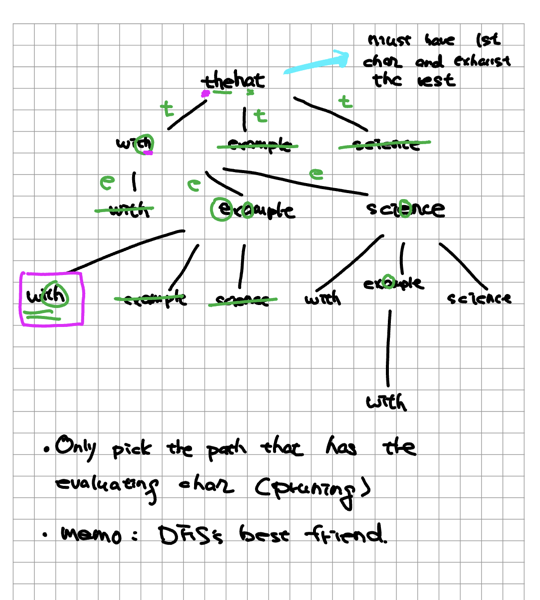 must have 1st
char and exhaust
the rest
thehat
t t t
with example science
e e e
with example science
with example science with example science
with
• Only pick the path that has the
evaluating char (pruning)
• memo: DFS's best friend.